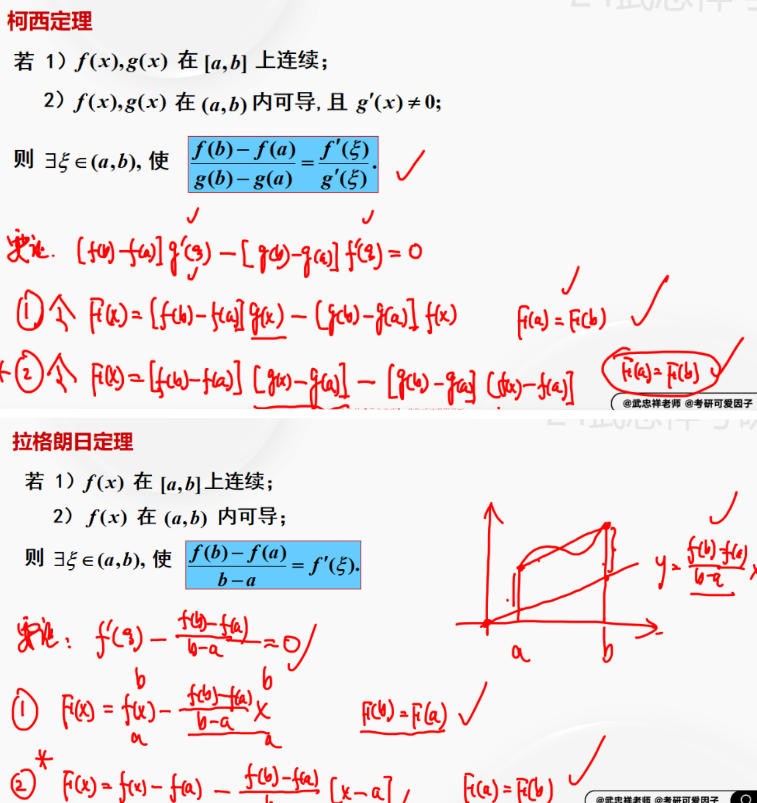 柯西定理
若 1）f(x),g(x) 在 [a,b] 上连续；
2）f(x),g(x) 在 (a,b) 内可导, 且 g′(x)≠0;
则 ∃ξ∈(a,b), 使 \frac{f(b)-f(a)}{g(b)-g(a)}=\frac{f′(ξ)}{g′(ξ)}.
要证. [f(b)-f(a)]g′(ξ)-[g(b)-g(a)]f′(ξ)=0
① 令 F(x)=[f(b)-f(a)]g(x)-[g(b)-g(a)]f(x) F(a)=F(b)
② 令 F(x)=[f(b)-f(a)][g(x)-g(a)]-[g(b)-g(a)](f(x)-f(a)] F(a)=F(b)
@武忠祥老师 @考研可爱因子
拉格朗日定理
若 1）f(x) 在 [a,b]上连续；
2）f(x) 在 (a,b) 内可导；
则 ∃ξ∈(a,b), 使 \frac{f(b)-f(a)}{b-a}=f′(ξ).
y=\frac{f(b)-f(a)}{b-a}x
a b
要证： f′(ξ)-\frac{f(b)-f(a)}{b-a}=0
b b
① F(x)=f(x)-\frac{f(b)-f(a)}{b-a}x F(b)=F(a)
a a
②* F(x)=f(x)-f(a)-\frac{f(b)-f(a)}{b}[x-a] F(a)=F(b)
@武忠祥老师 @考研可爱因子